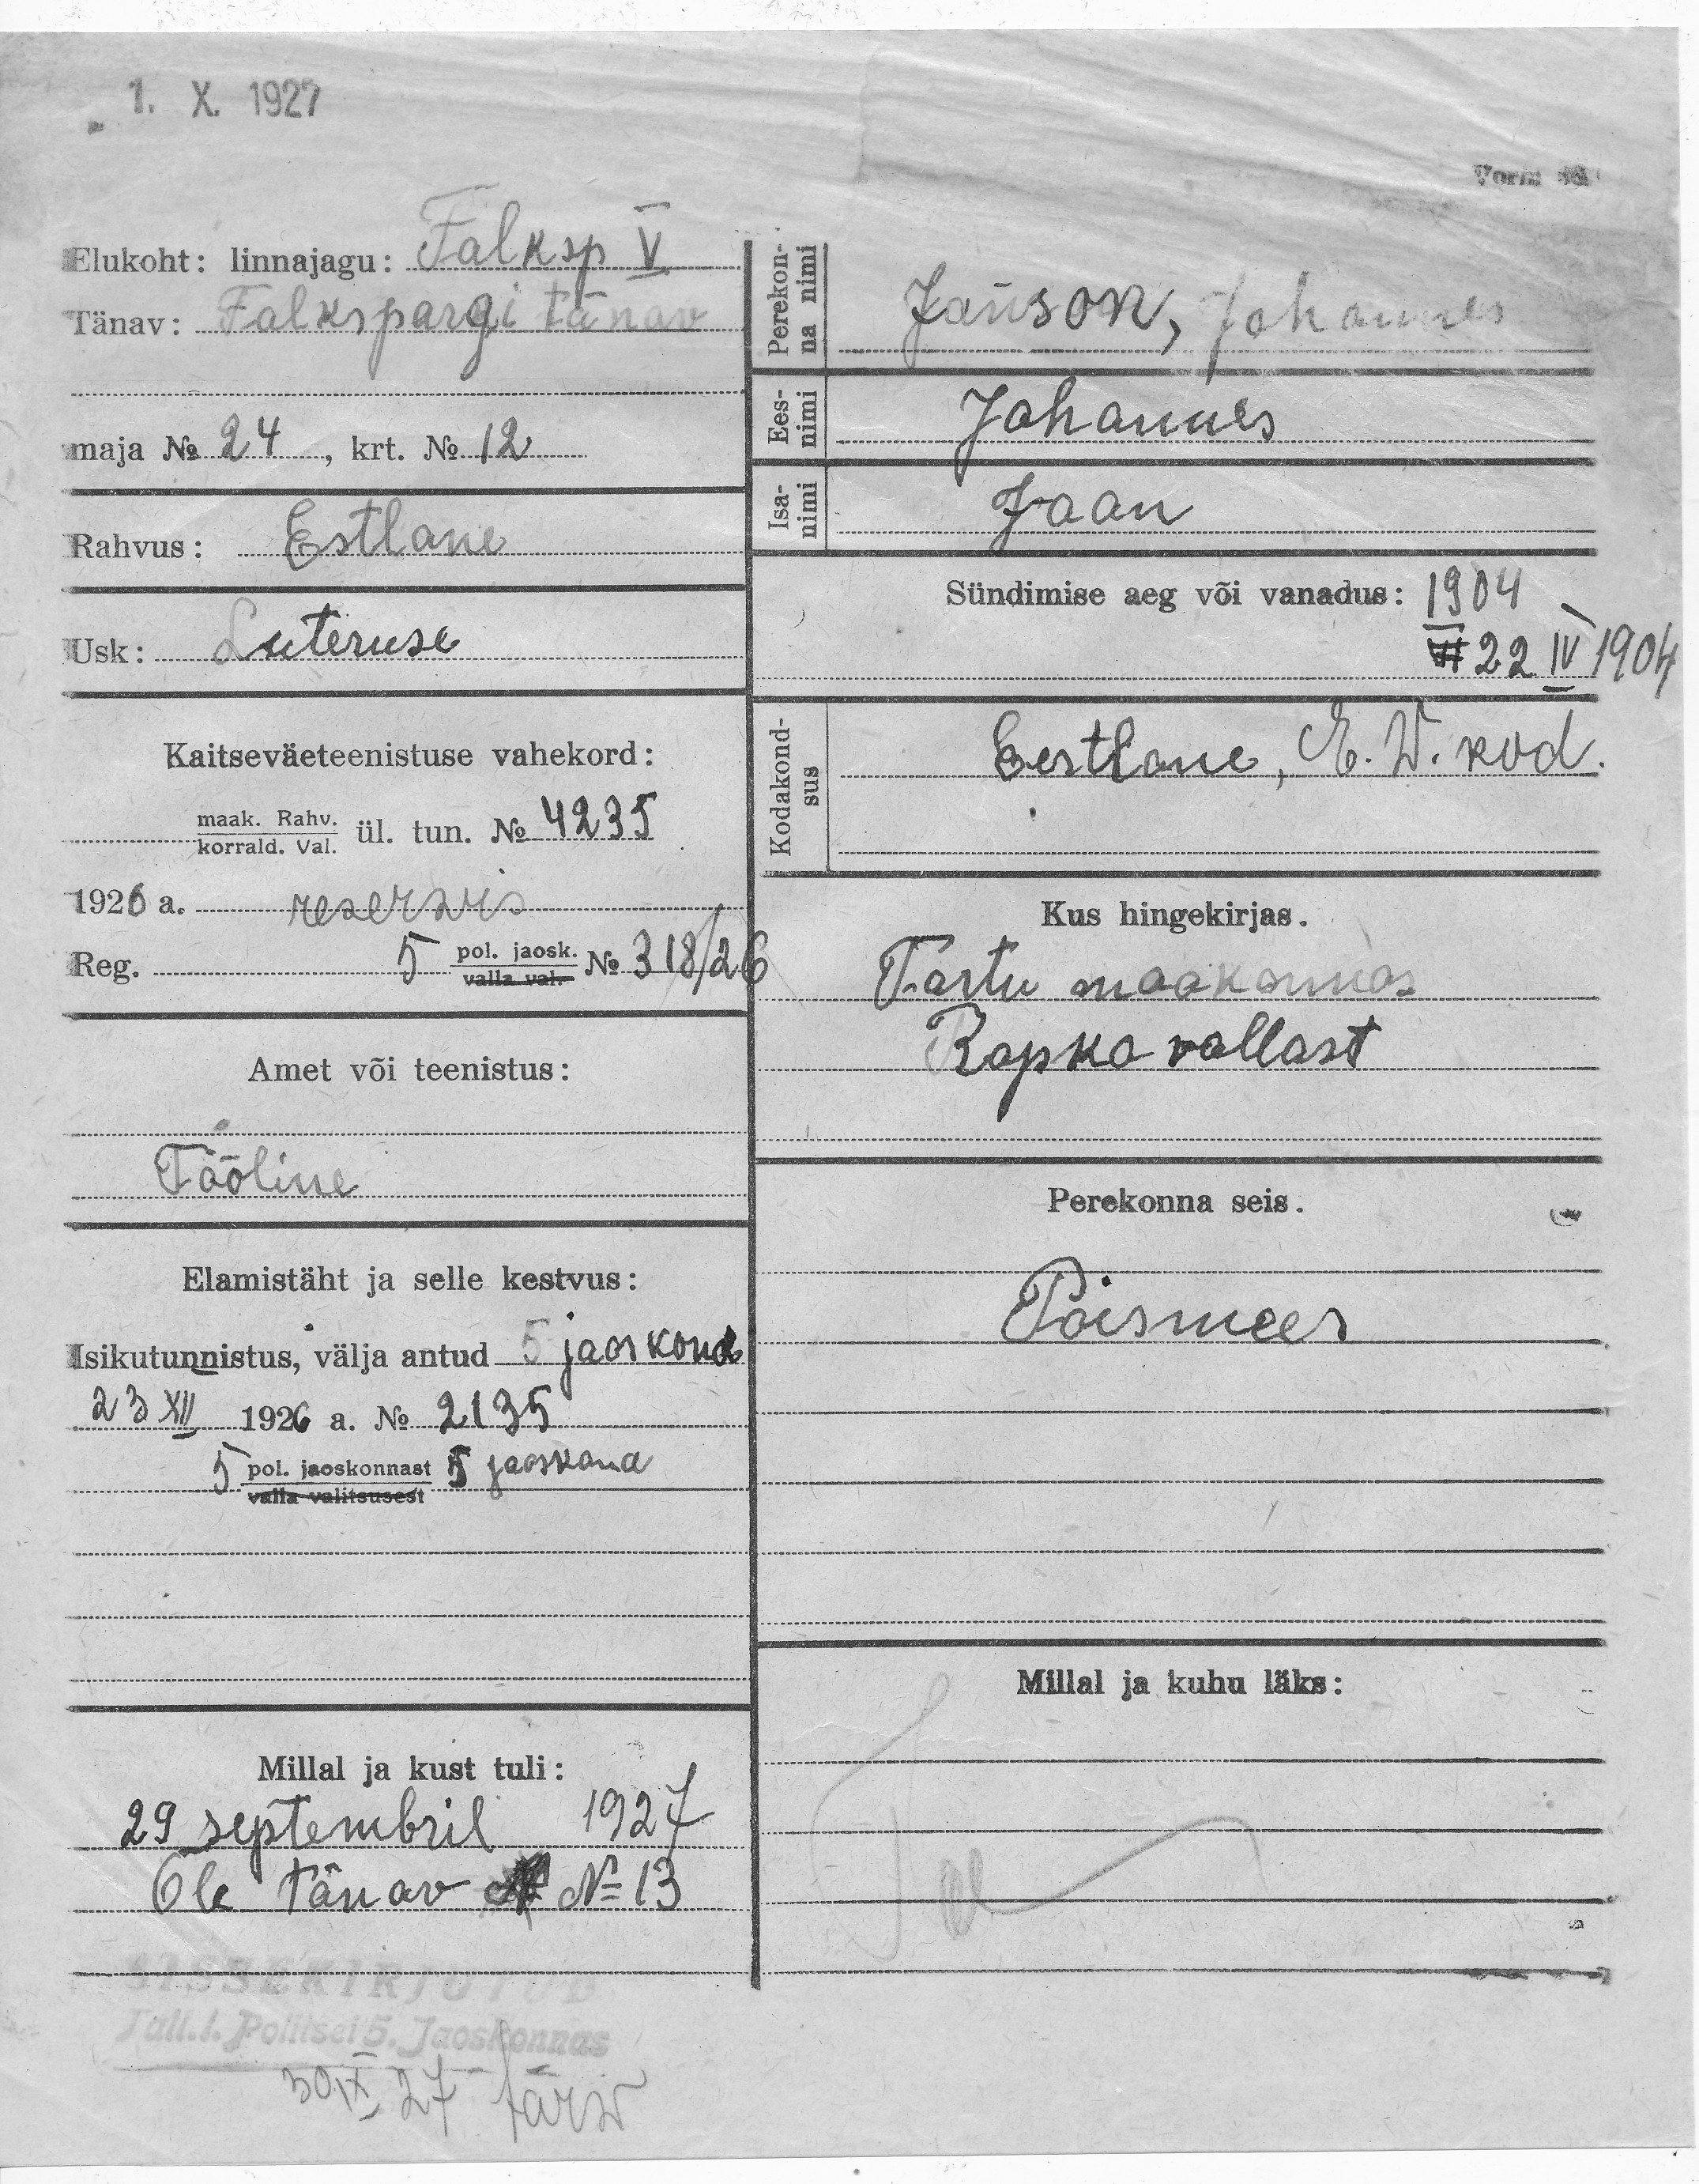 1. X. 1927
Vorm
Elukoht: linnajagu: Falksp V
Tänav: Falkspargi tänav
maja № 24, krt. № 12
Rahvus: Estlane
Usk: Luteruse
Kaitseväeteenistuse vahekord:
maak. Rahv.
korrald. Val. ül. tun. № 4235
1926 a. reservis
Reg. 5 pol. jaosk. № 318/26
valla val.
Amet või teenistus:
Tööline
Elamistäht ja selle kestvus:
Isikutunnistus, välja antud 5 jaoskond
23 XII 1926 a. № 2135
5 pol. jaoskonnast 5 jaoskond
valla valitsusest
Millal ja kust tuli:
29 septembril 1927
Ole tänav № 13
SISSEKIRJUTUD
Tall.l. Politsei 5. Jaoskonnas
30 IX 27
Perekon-
na nimi
Janson, Johannes
Ees-
nimi
Johannes
Isa-
nimi
Jaan
Sündimise aeg või vanadus: 1904
22 IV 1904
Kodakond-
sus
Eestlane, E. W. kod.
Kus hingekirjas.
Tartu maakonnas
Rapka vallast
Perekonna seis.
Poismees
Millal ja kuhu läks: